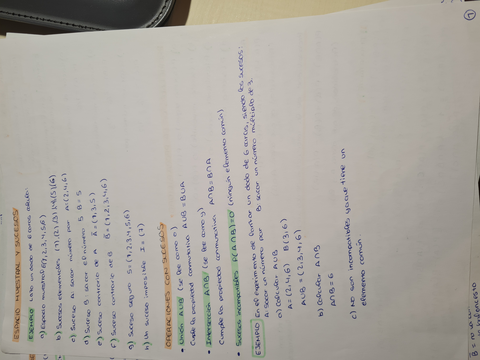 ESPACIO MUESTRAL Y SUCESOS
EJEMPLO Lanzo un dado de 6 caras. Calcula:
a) Espacio muestral E(1,2,3,4,5,6)
b) Sucesos elementales (1),(2),(3),(4),(5),(6)
c) Suceso A: sacar número par A:(2,4,6)
d) Suceso B: sacar el número 5 B=5
e) Suceso contrario de A Ā=(1,3,5)
f) Suceso contrario de B B̄=(1,2,3,4,6)
g) Suceso seguro S=(1,2,3,4,5,6)
h) Un suceso imposible I=(7)
OPERACIONES CON SUCESOS
• Unión A∪B (se lee como o)
Cumple la propiedad conmutativa A∪B=B∪A
• Intersección A∩B (se lee como y)
Cumple la propiedad conmutativa A∩B=B∩A
• Sucesos incompatibles P(A∩B)=0 (ningún elemento común)
EJEMPLO En el experimento de lanzar un dado de 6 caras, siendo los sucesos:
A: sacar un número par B: sacar un número múltiplo de 3.
a) Calcular A∪B
A=(2,4,6) B(3,6)
A∪B=(2,3,4,6)
b) Calcular A∩B
A∩B=6
c) No son incompatibles ya que tiene un
elemento común.
1